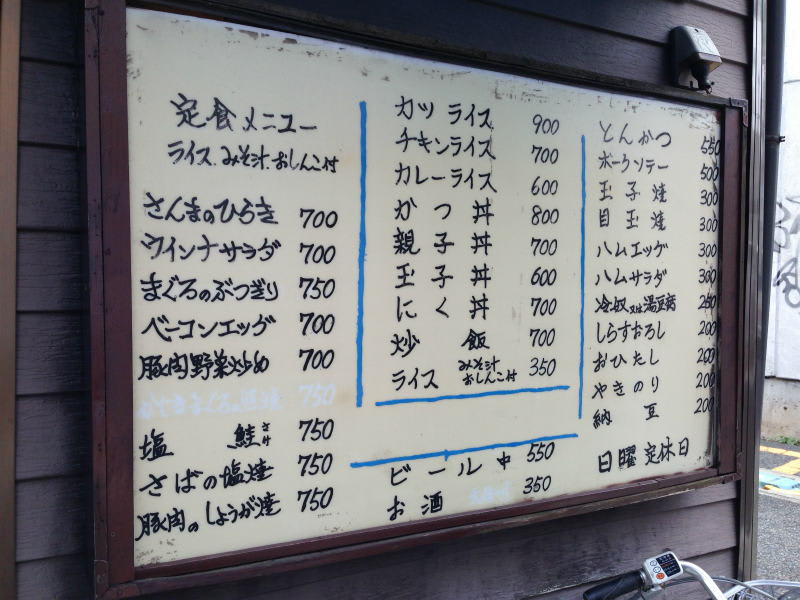 定食メニュー
ライス、みそ汁、おしんこ付
さんまのひらき 700
ウインナサラダ 700
まぐろのぶつぎり 750
ベーコンエッグ 700
豚肉野菜炒め 700
750
塩鮭さけ 750
さばの塩焼 750
豚肉のしょうが焼 750
カツライス 900
チキンライス 700
カレーライス 600
かつ丼 800
親子丼 700
玉子丼 600
にく丼 700
炒飯 700
ライス みそ汁おしんこ付 350
ビール中 550
お酒 350
とんかつ 550
ポークソテー 500
玉子焼 300
目玉焼 300
ハムエッグ 300
ハムサラダ 300
冷奴又は湯豆腐 250
しらすおろし 200
おひたし 200
やきのり 200
納豆 200
日曜定休日